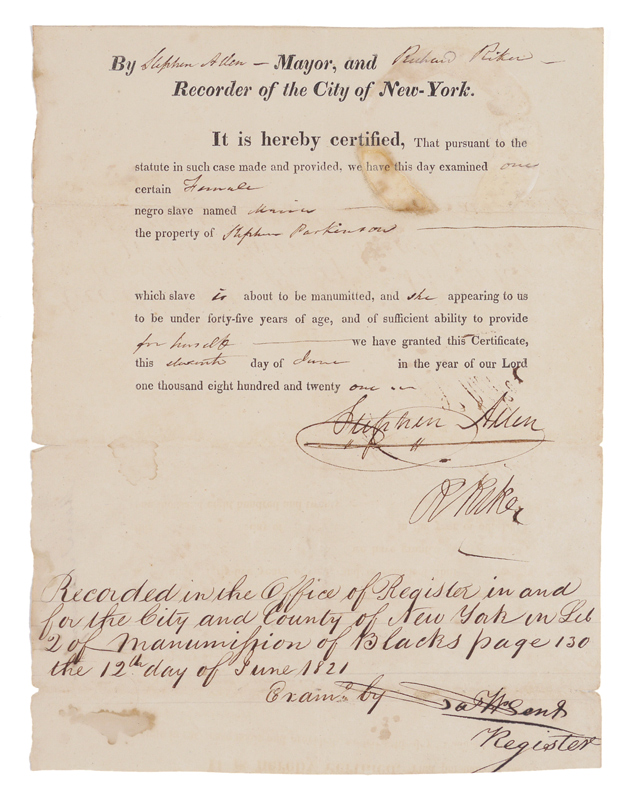 By Stephen Allen — Mayor, and Richard Riker —
Recorder of the City of New-York.
It is hereby certified, That pursuant to the
statute in such case made and provided, we have this day examined one
certain Female
negro slave named
the property of Stephen Parkinson
which slave is about to be manumitted, and she appearing to us
to be under forty-five years of age, and of sufficient ability to provide
for herself we have granted this Certificate,
this day of June in the year of our Lord
one thousand eight hundred and twenty one
Stephen Allen
R Riker
Recorded in the Office of Register in and
for the City and County of New York in Lib
2 of Manumission of Blacks page 130
the 12th day of June 1821
Examd by
Register